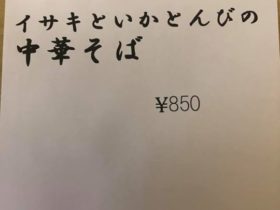 イサキといかとんびの
中華そば
¥850